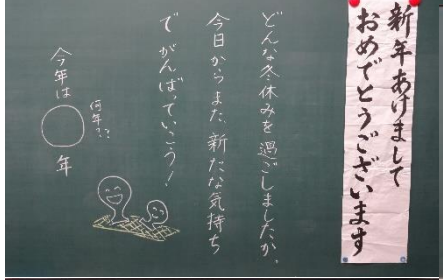 新年あけまして
おめでとうございます
どんな冬休みを過ごしましたか。
今日からまた、新たな気持ち
でがんばっていこう！
今年は◯年
何年??